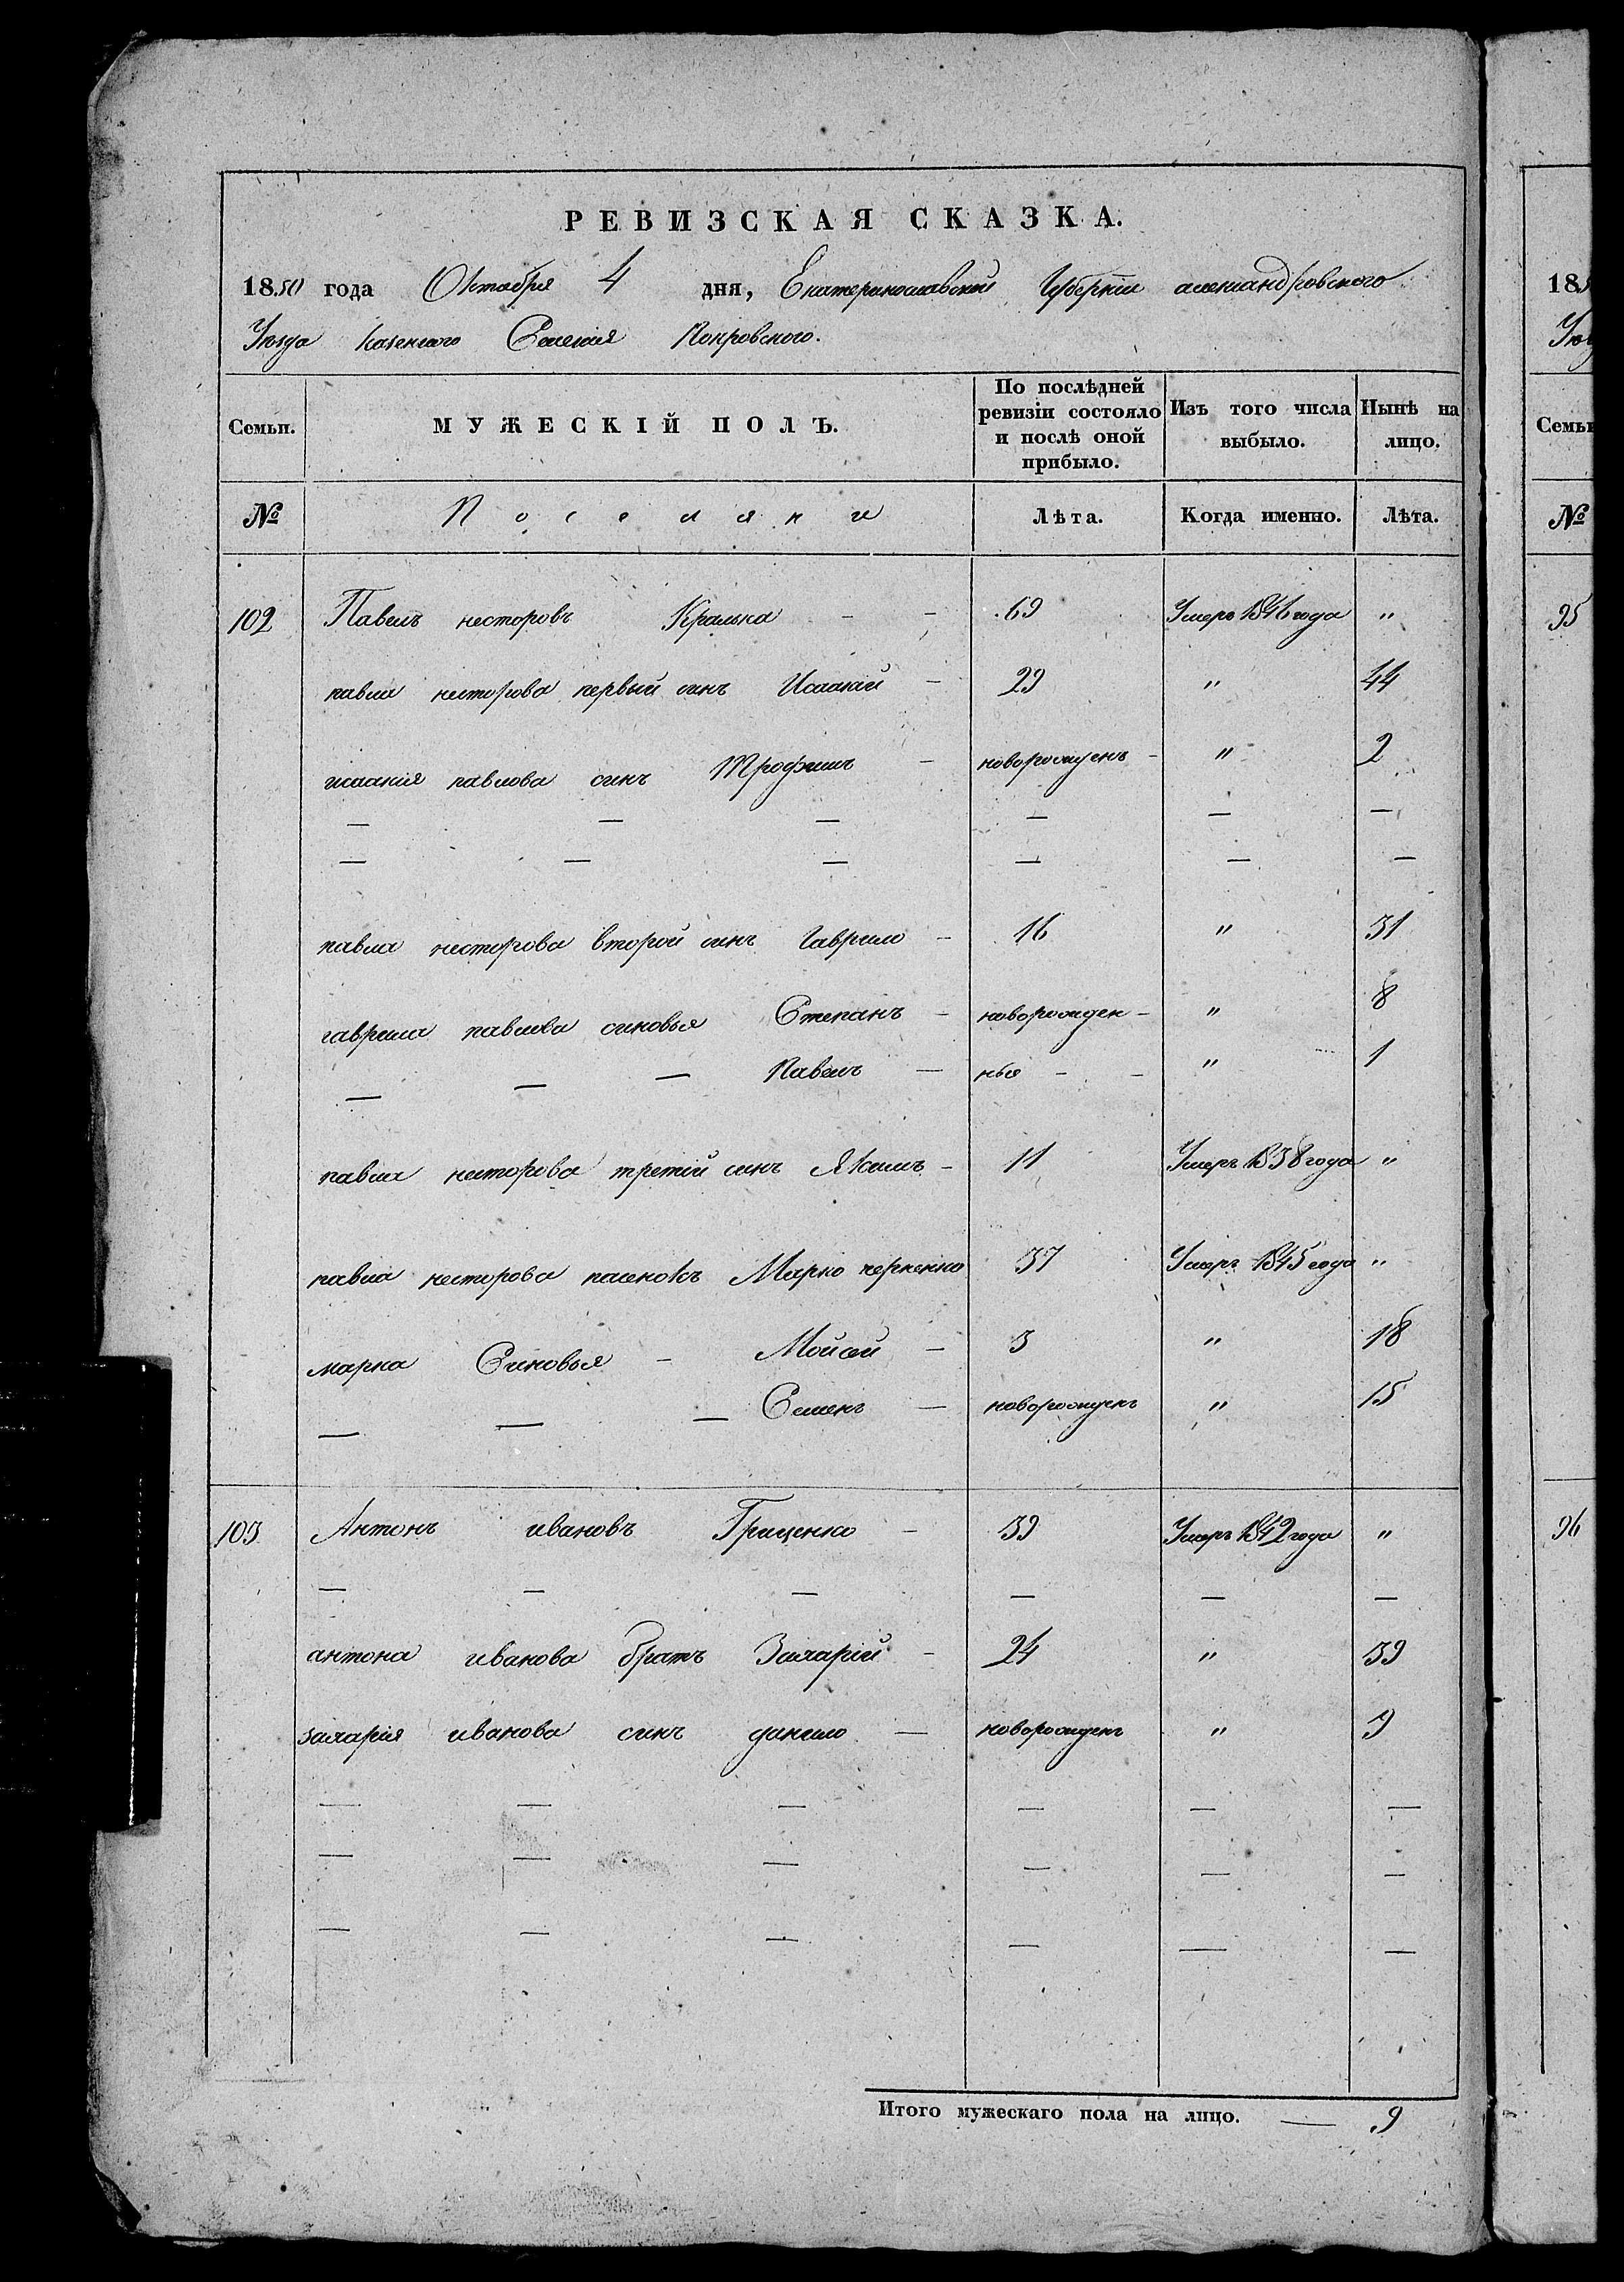 РЕВИЗСКАЯ СКАЗКА.
1850 года Октября 4 дня, Екатеринославской Губернiи александровского
Уезда казенного Селенiя Покровского.
Семьи. МУЖЕСКIЙ ПОЛЪ. По послѣдней ревизiи состояло и послѣ оной прибыло. Изъ того числа выбыло. Нынѣ на лицо.
№ Поселяни Лѣта. Когда именно. Лѣта.
102 Павелъ несторовъ Кралька - - 69 Умеръ 1846 года "
павла несторова первый синъ Исаакiй - 29 " 44
исаакiя павлова синъ Трофимъ - новорожденъ - " 2
— — — — — —
— — — — — —
павла несторова второй синъ Гаврило - 16 " 31
гаврила павлова синовья Степанъ - новорожден- " 8
— — — Павелъ — нья - - " 1
павла несторова третiй синъ Якимъ - 11 Умеръ 1838 года "
павла несторова пасенокъ Марко 37 Умеръ 1845 года "
марка Синовья - Мойсей - 3 " 18
— — — Семенъ — новорожденъ " 15
103 Антонъ ивановъ Гриценко - 39 Умеръ 1842 года "
— — — — — —
антона иванова братъ Захарiй - 24 " 39
захарiя иванова синъ данило — новорожденъ " 9
— — — — — —
— — — — — —
— — — — — —
Итого мужескаго пола на лицо. — 9
185
Уез
Семьи
№
95
96